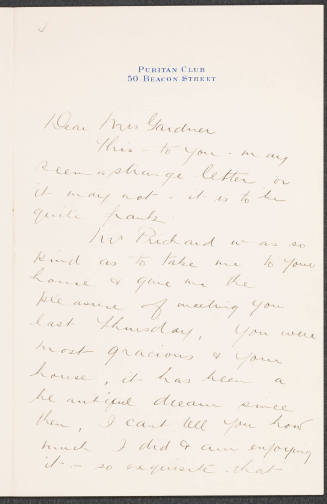 PURITAN CLUB
50 BEACON STREET
Dear Mrs Gardner
This - to you - may
seem a strange letter or
it may not - it is to be
quite frank
Mr Prichard was so
kind as to take me to your
house & give me the
pleasure of meeting you
last Thursday, You were
most gracious & your
house, it has been a
beautiful dream since
then, I cant tell you how
much I did & am enjoying
it - so exquisite that